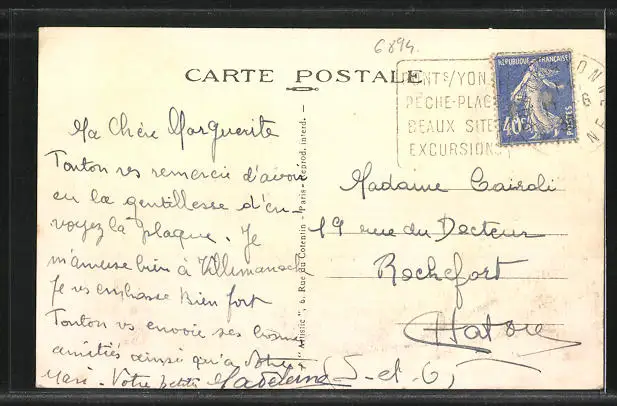 6894.
CARTE POSTALE
PONT S/YON
PÊCHE-PLAGE
BEAUX SITES
EXCURSIONS
RÉPUBLIQUE FRANÇAISE
40c
POSTES
YONNE
Ma Chère Marguerite
Tonton vs remercie d'avoir
eu la gentillesse d'en-
voyez la plaque. Je
m'amuse bien à
Je vs embrasse bien fort
Tonton vs envoie ses bonnes
amitiés ainsi qu'a votre
Mari. Votre petite Madeleine
"Artistic", 6, Rue du Cotentin - Paris - Reprod. interd. -
Madame Cairoli
19 rue du Docteur
Rochefort
Chatou
(S-et-O)